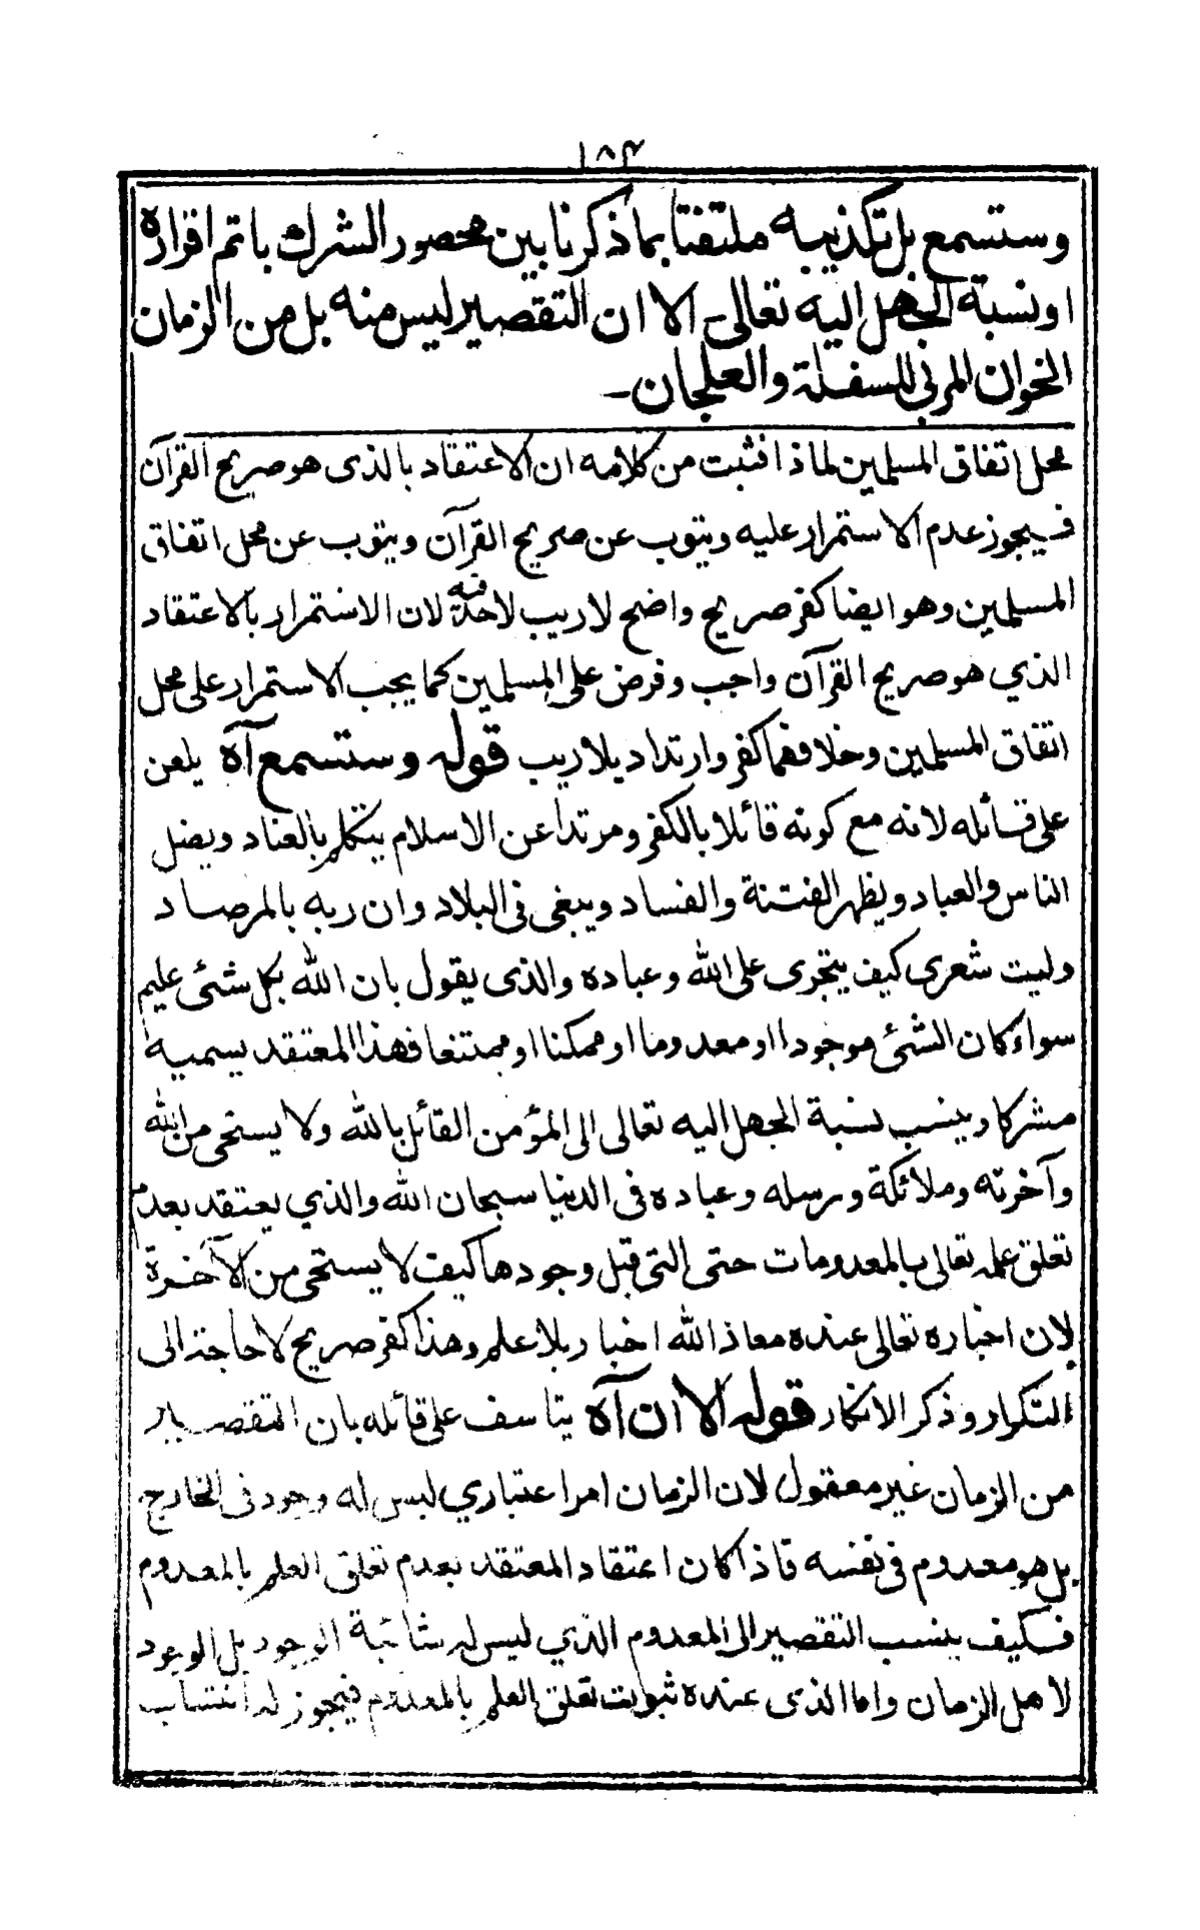 ١٨٣
وستسمع بل تكذيبه ملتفتا بما ذكرنا بين محصور الشرك باتم اقراره
او نسبة الجهل اليه تعالى۔ الا ان التقصير ليس منه بل من الزمان
الخوان المربي للسفلة والعلجان۔
محل اتفاق المسلمين لما ذا فثبت من كلامه ان الاعتقاد بالذى هو صريح القرآن
فيجوز عدم الاستمرار عليه ويتوب عن صريح القرآن ويتوب عن محل اتفاق
المسلمين وهو ايضا كفر صريح واضح لا ريب لاحد فيه لان الاستمرار بالاعتقاد
الذي هو صريح القرآن واجب وفرض على المسلمين كما يجب الاستمرار على محل
اتفاق المسلمين وخلافهما كفر وارتداد بلا ريب قوله وستسمع آه يلعن
على قائله لانه مع كونه قائلا بالكفر ومرتدا عن الاسلام يتكلم بالعناد ويضل
الناس والعباد ويظهر الفتنة والفساد ويبغى فى البلاد وان ربه بالمرصاد
وليت شعرى كيف يتجرى على الله وعباده والذى يقول بان الله بكل شئى عليم
سواء كان الشئى موجودا او معدوما او ممكنا او ممتنعا فهذا المعتقد يسميه
مشركا وينسب نسبة الجهل اليه تعالى الى المؤمن القائل بالله ولا يستحى من الله
وآخرته وملائكة ورسله وعباده فى الدنيا سبحان الله والذي يعتقد بعدم
تعلق علمه تعالى بالمعدومات حتى التى قبل وجودها كيف لا يستحى من الآخرة
لان اخباره تعالى عنده معاذ الله اخبار بلا علم وهذا كفر صريح لا حاجة الى
التكرار وذكر الانكار قوله الا ان آه يتاسف على قائله بان التقصير
من الزمان غير معقول لان الزمان امر اعتباري ليس له وجود فى الخارج
بل هو معدوم فى نفسه فاذا كان اعتقاد المعتقد بعدم تعلق العلم بالمعدوم
فكيف ينسب التقصير الى المعدوم الذي ليس له شائبة الوجود بل الوجود
لاهل الزمان واما الذى عنده ثبوت تعلق العلم بالمعدوم فيجوز له انتساب